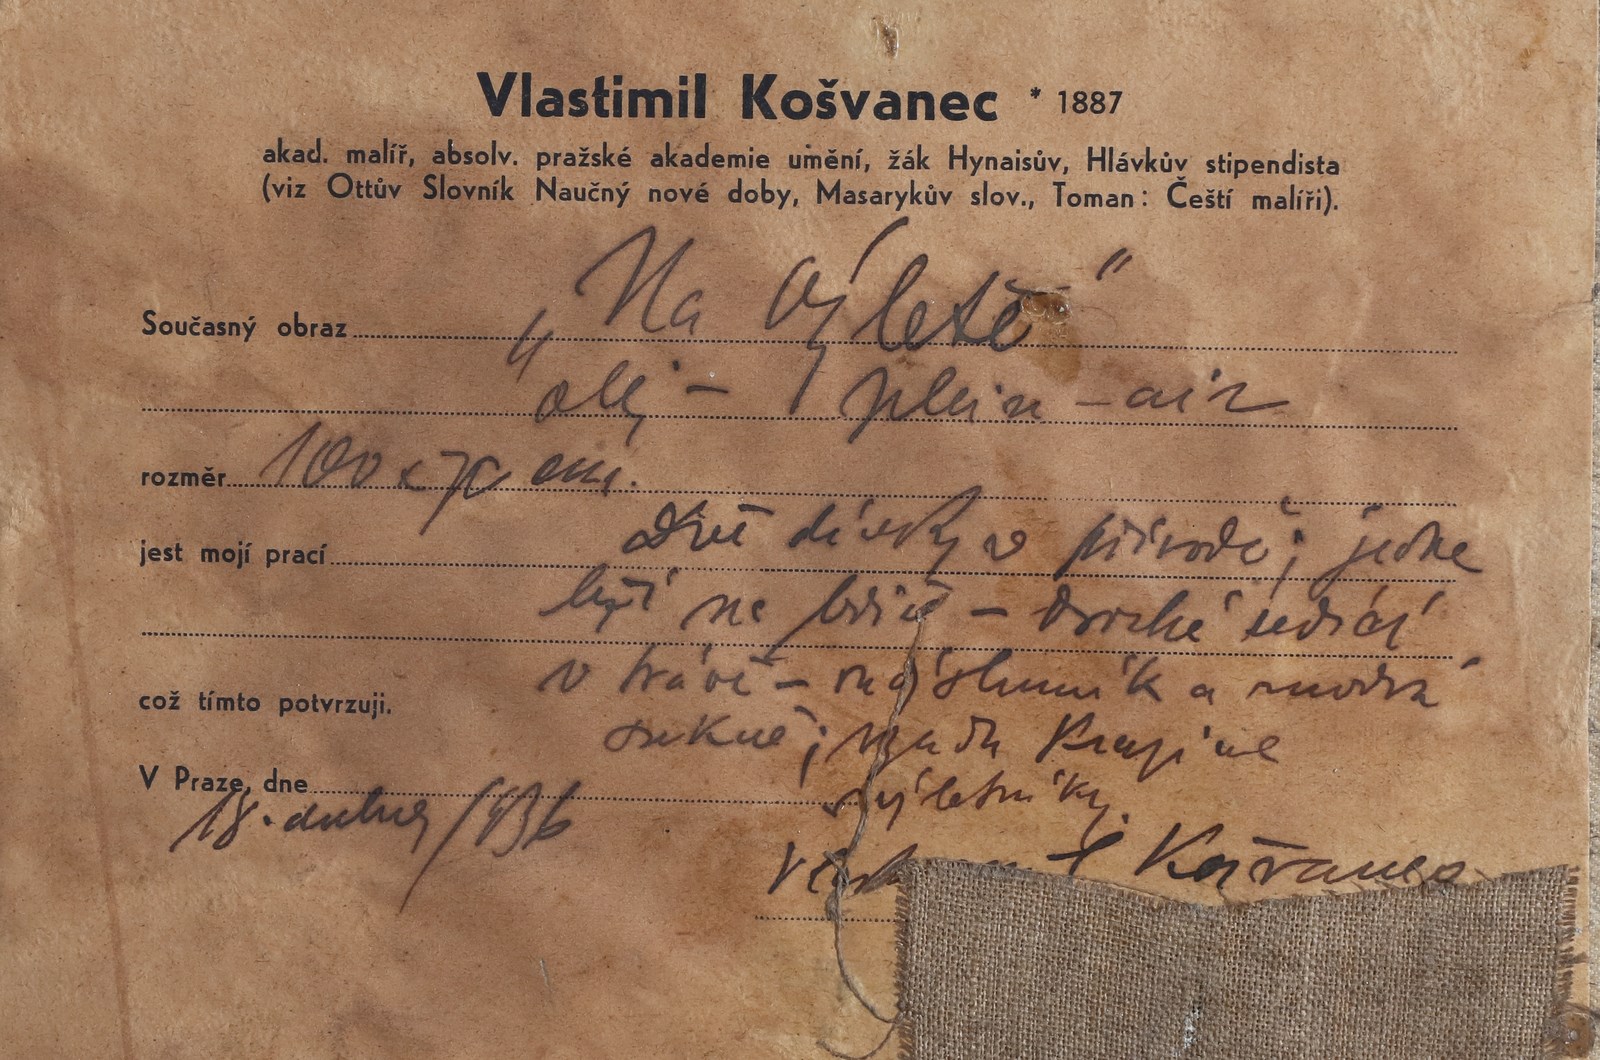 Vlastimil Košvanec * 1887
akad. malíř, absolv. pražské akademie umění, žák Hynaisův, Hlávkův stipendista
(viz Ottův Slovník Naučný nové doby, Masarykův slov., Toman: Čeští malíři).
Současný obraz „Na výletě“
olej – plein-air
rozměr 100 x 70 cm.
jest mojí prací Dvě dívky v přírodě; jedna
leží na břiše – druhá sedící
v trávě – slunník a modrá
což tímto potvrzuji.
sukně; vzadu krajina
V Praze, dne
výletníky.
18. dubna 1936
Košvanec